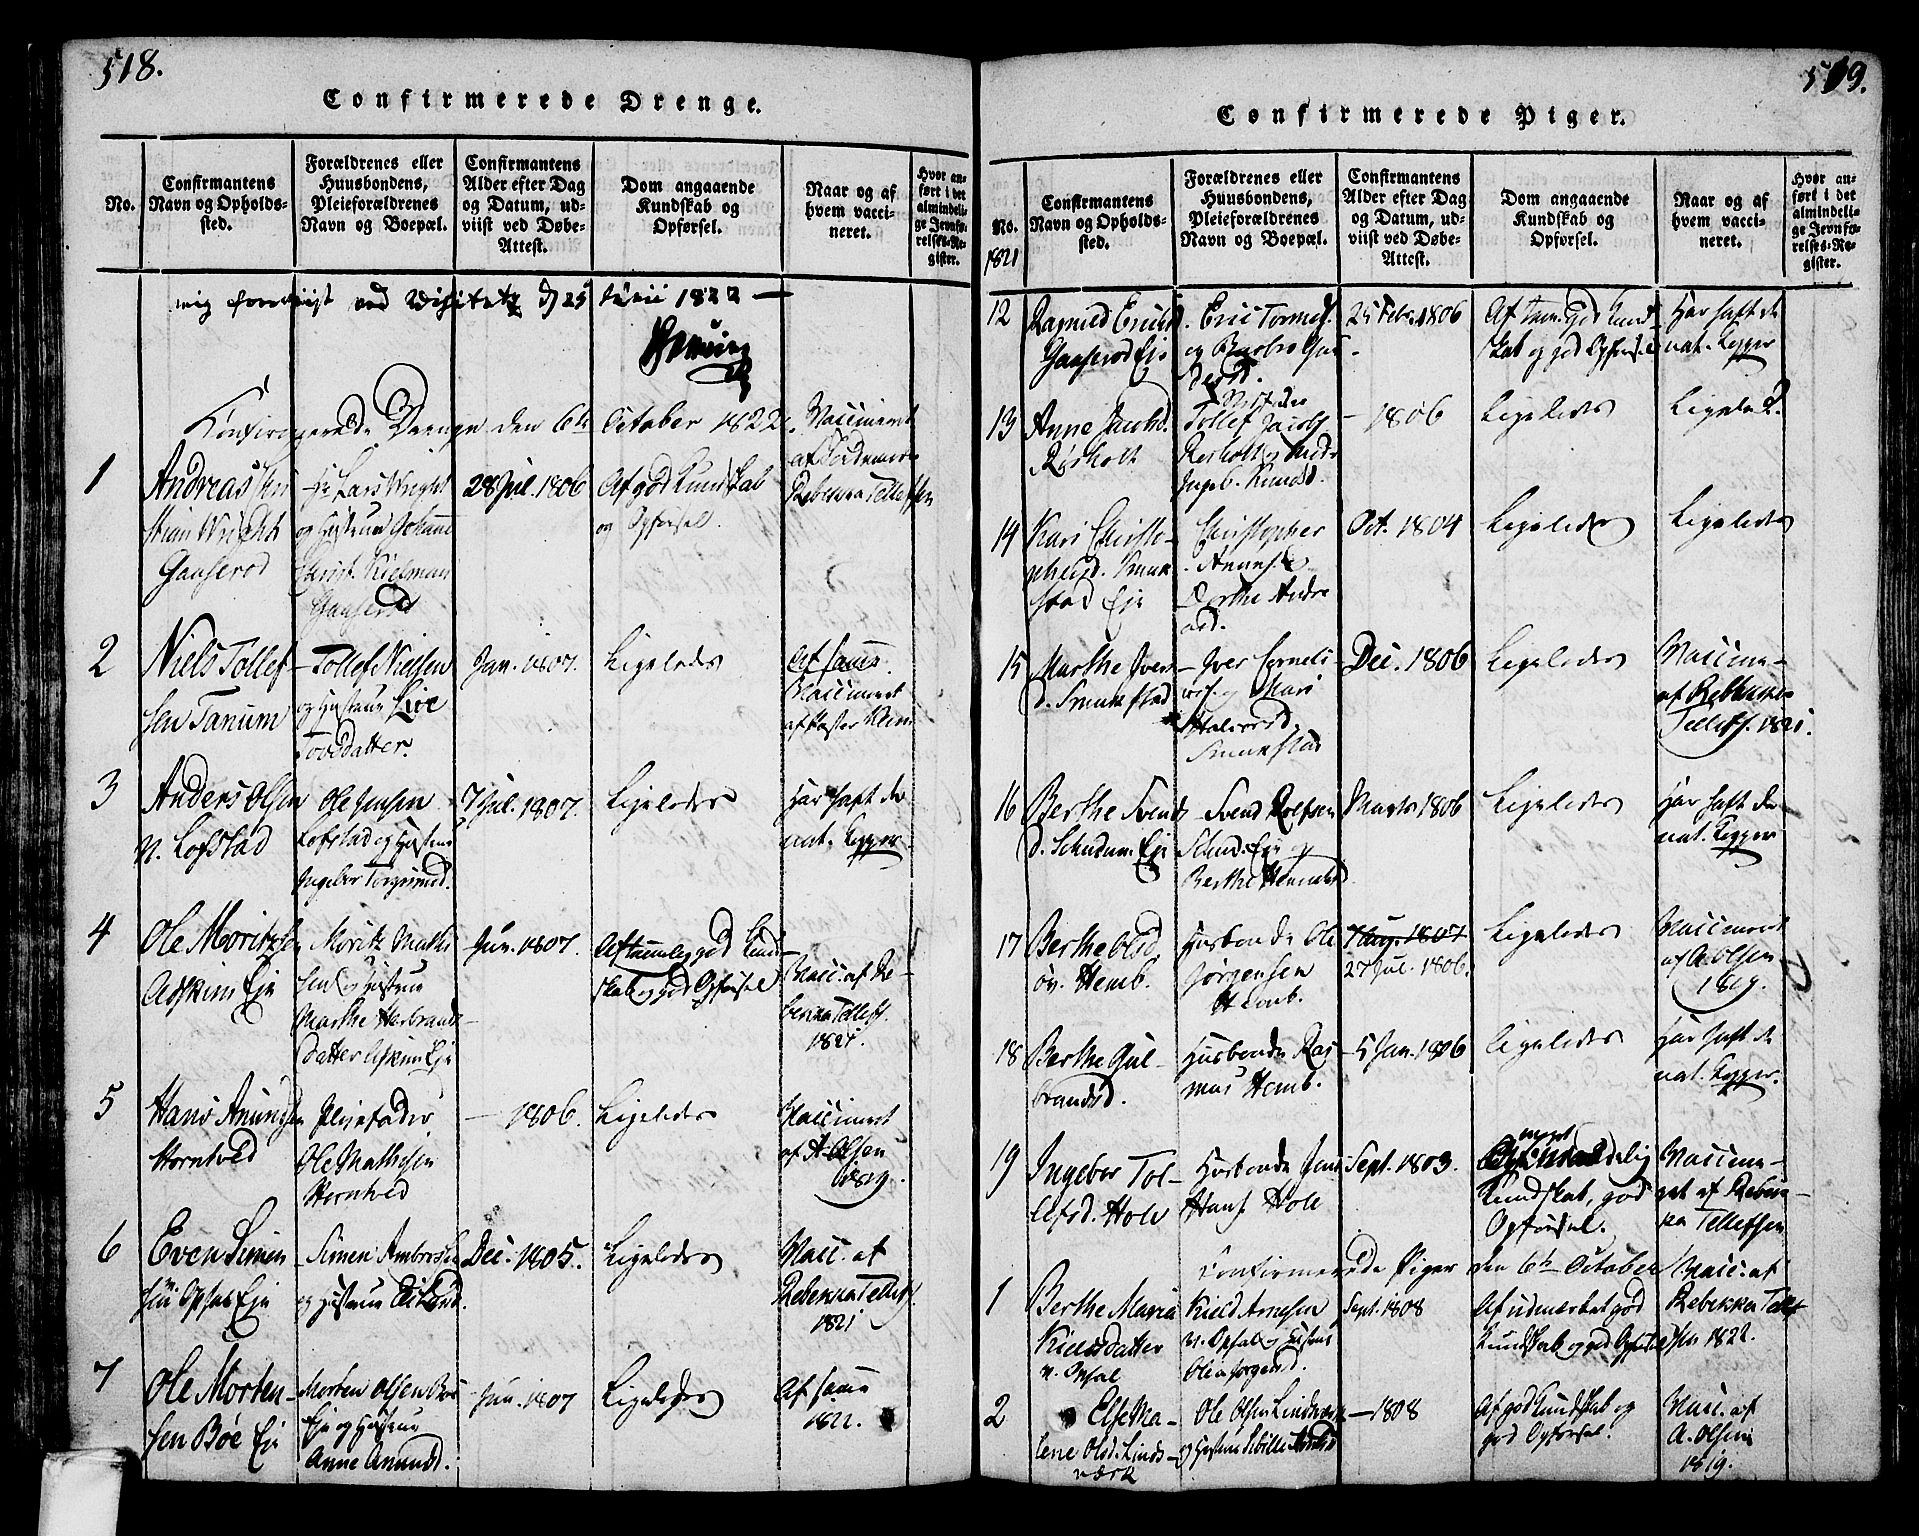 518.
Confirmerede Drenge.
No.
Confirmantens
Navn og Opholds-
sted.
Forældrenes eller
Huusbondens,
Pleieforældrenes
Navn og Boepæl.
Confirmantens
Alder efter Dag
og Datum, ud-
viist ved Døbe-
Attest.
Dom angaaende
Kundskab og
Opførsel.
Naar og af
hvem vacci-
neret.
Hvor an-
ført i det
almindeli-
ge Jevnfø-
relses-Re-
gister.
mig foreviist ved Visitatz d 25 Junii 1822
Confirmerede Drenge den 6te October 1822
1
Andreas
Gaaserod
Hr Lars Wright
og Hustrue Johanne
Christ. Kielman
Gaaserød
28 Jul. 1806
Af god Kundskab
og Opførsel.
Vaccineret
af
Rebekka Tellefsen
2
Niels Tollef-
sen Tanum
Tollef Nielsen
og Hustrue Live
Tovsdatter.
Jan. 1807.
Ligeledes
Af samme.
Vaccineret
af Pastor
3
Anders Olsen
n. Lofstad
Ole Jensen
Lofstad og Hustrue
Ingebor
7 Jul. 1807.
Ligeledes
Har haft de
nat. Kopper.
4
Ole Moritzsen
Askum Eje
Moritz Mathi-
sen og Hustrue
Marthe Herbrands-
datter Askum Eje
Jun. 1807.
Af temmelig god Kund-
skab og god Opførsel
Vacc. af Re-
bekka Tellefs.
1821.
5
Hans Amundsen
Hornhved
Pleiefader
Ole Mathisen
Hornhved
1806.
Ligeledes
Vaccineret
af A Olsen
1819.
6
Even Simen-
sen Opsal Eje
Simen Ambros
og Hustrue
Dec. 1805.
Ligeledes
Vacc. af
Rebekka Tellefs.
1821
7
Ole Morten-
sen Bøe Eje
Morten Olsen Bøe
Eje og Hustrue
Anne Amundsd.
Jun. 1807
Ligeledes
Af samme
1822.
519.
Confirmerede Piger.
No.
1821
Confirmantens
Navn og Opholds-
sted.
Forældrenes eller
Huusbondens,
Pleieforældrenes
Navn og Boepæl.
Confirmantens
Alder efter Dag
og Datum, ud-
viist ved Døbe-
Attest.
Dom angaaende
Kundskab og
Opførsel.
Naar og af
hvem vacci-
neret.
Hvor an-
ført i det
almindeli-
ge Jevnfø-
relses-Re-
gister.
12
Ragnild Ericksd.
Gaaserod Eje
Eric
og Barbro
25 Febr. 1806
Af tem. god Kund-
skab og god Opførsel
Har haft de
nat. Kopper
13
Anne Jacobsd.
Rørholt
Tollef Jacobs.
Rørholt
Ingeb. Knudsd.
1806
Ligeledes
Ligeled.
14
Kari Christo-
phersd. Smuk-
stad Eje
Christopher
Dorthe Andre
asd.
Oct. 1804
Ligeledes
Ligeledes
15
Marthe Ivers-
d. Smukstad
Iver Corneli-
usf. og Mari
Halvorsd.
Smukstad
Dec. 1806
Ligeledes
Vaccine-
af Rebekka
Tellefs. 1821.
16
Berthe Svends-
d. Eje
Svend Rolfsen
Eje og
Berthe
Marts 1806
Ligeledes
Har haft de
nat. Kopper
17
Berthe Olsd.
øv. Hemb.
Husbonde Ole
Jørgensen
Hemb.
7 Aug. 1807
27 Jul. 1806.
Ligeledes
Vaccineret
af A. Olsen
1819.
18
Berthe Gul-
brandsd.
Husbonde Ras-
mus Hemb.
5 Jan. 1806
Ligeledes
Har haft de
nat. Kopper.
19
Ingebor Tol-
lefsd. Hole
Husbonde Jens
Hans. Hole
Sept. 1803.
Kundskab, god
Opførsel.
Vaccine-
ret af Rebek-
ka Tellefsen
Confirmerede Piger den 6te October
1
Berthe Maria
Kieldsdatter
n. Opsal
Kield Arnesen
n. Opsal og Hustrue
Olea Jørgensd.
Sept. 1808
Af udmærket god
Kundskab og god Opførsel
Vacc. af
Rebekka Tellef-
sen 1822.
2
Else Ma-
lene Olsd. Linds-
værk
Ole Olsen Lindsværk
og Hustrue Sibille
1808
Af god Kundskab og
god Opførsel.
Vacc. af
A. Olsen
1819.